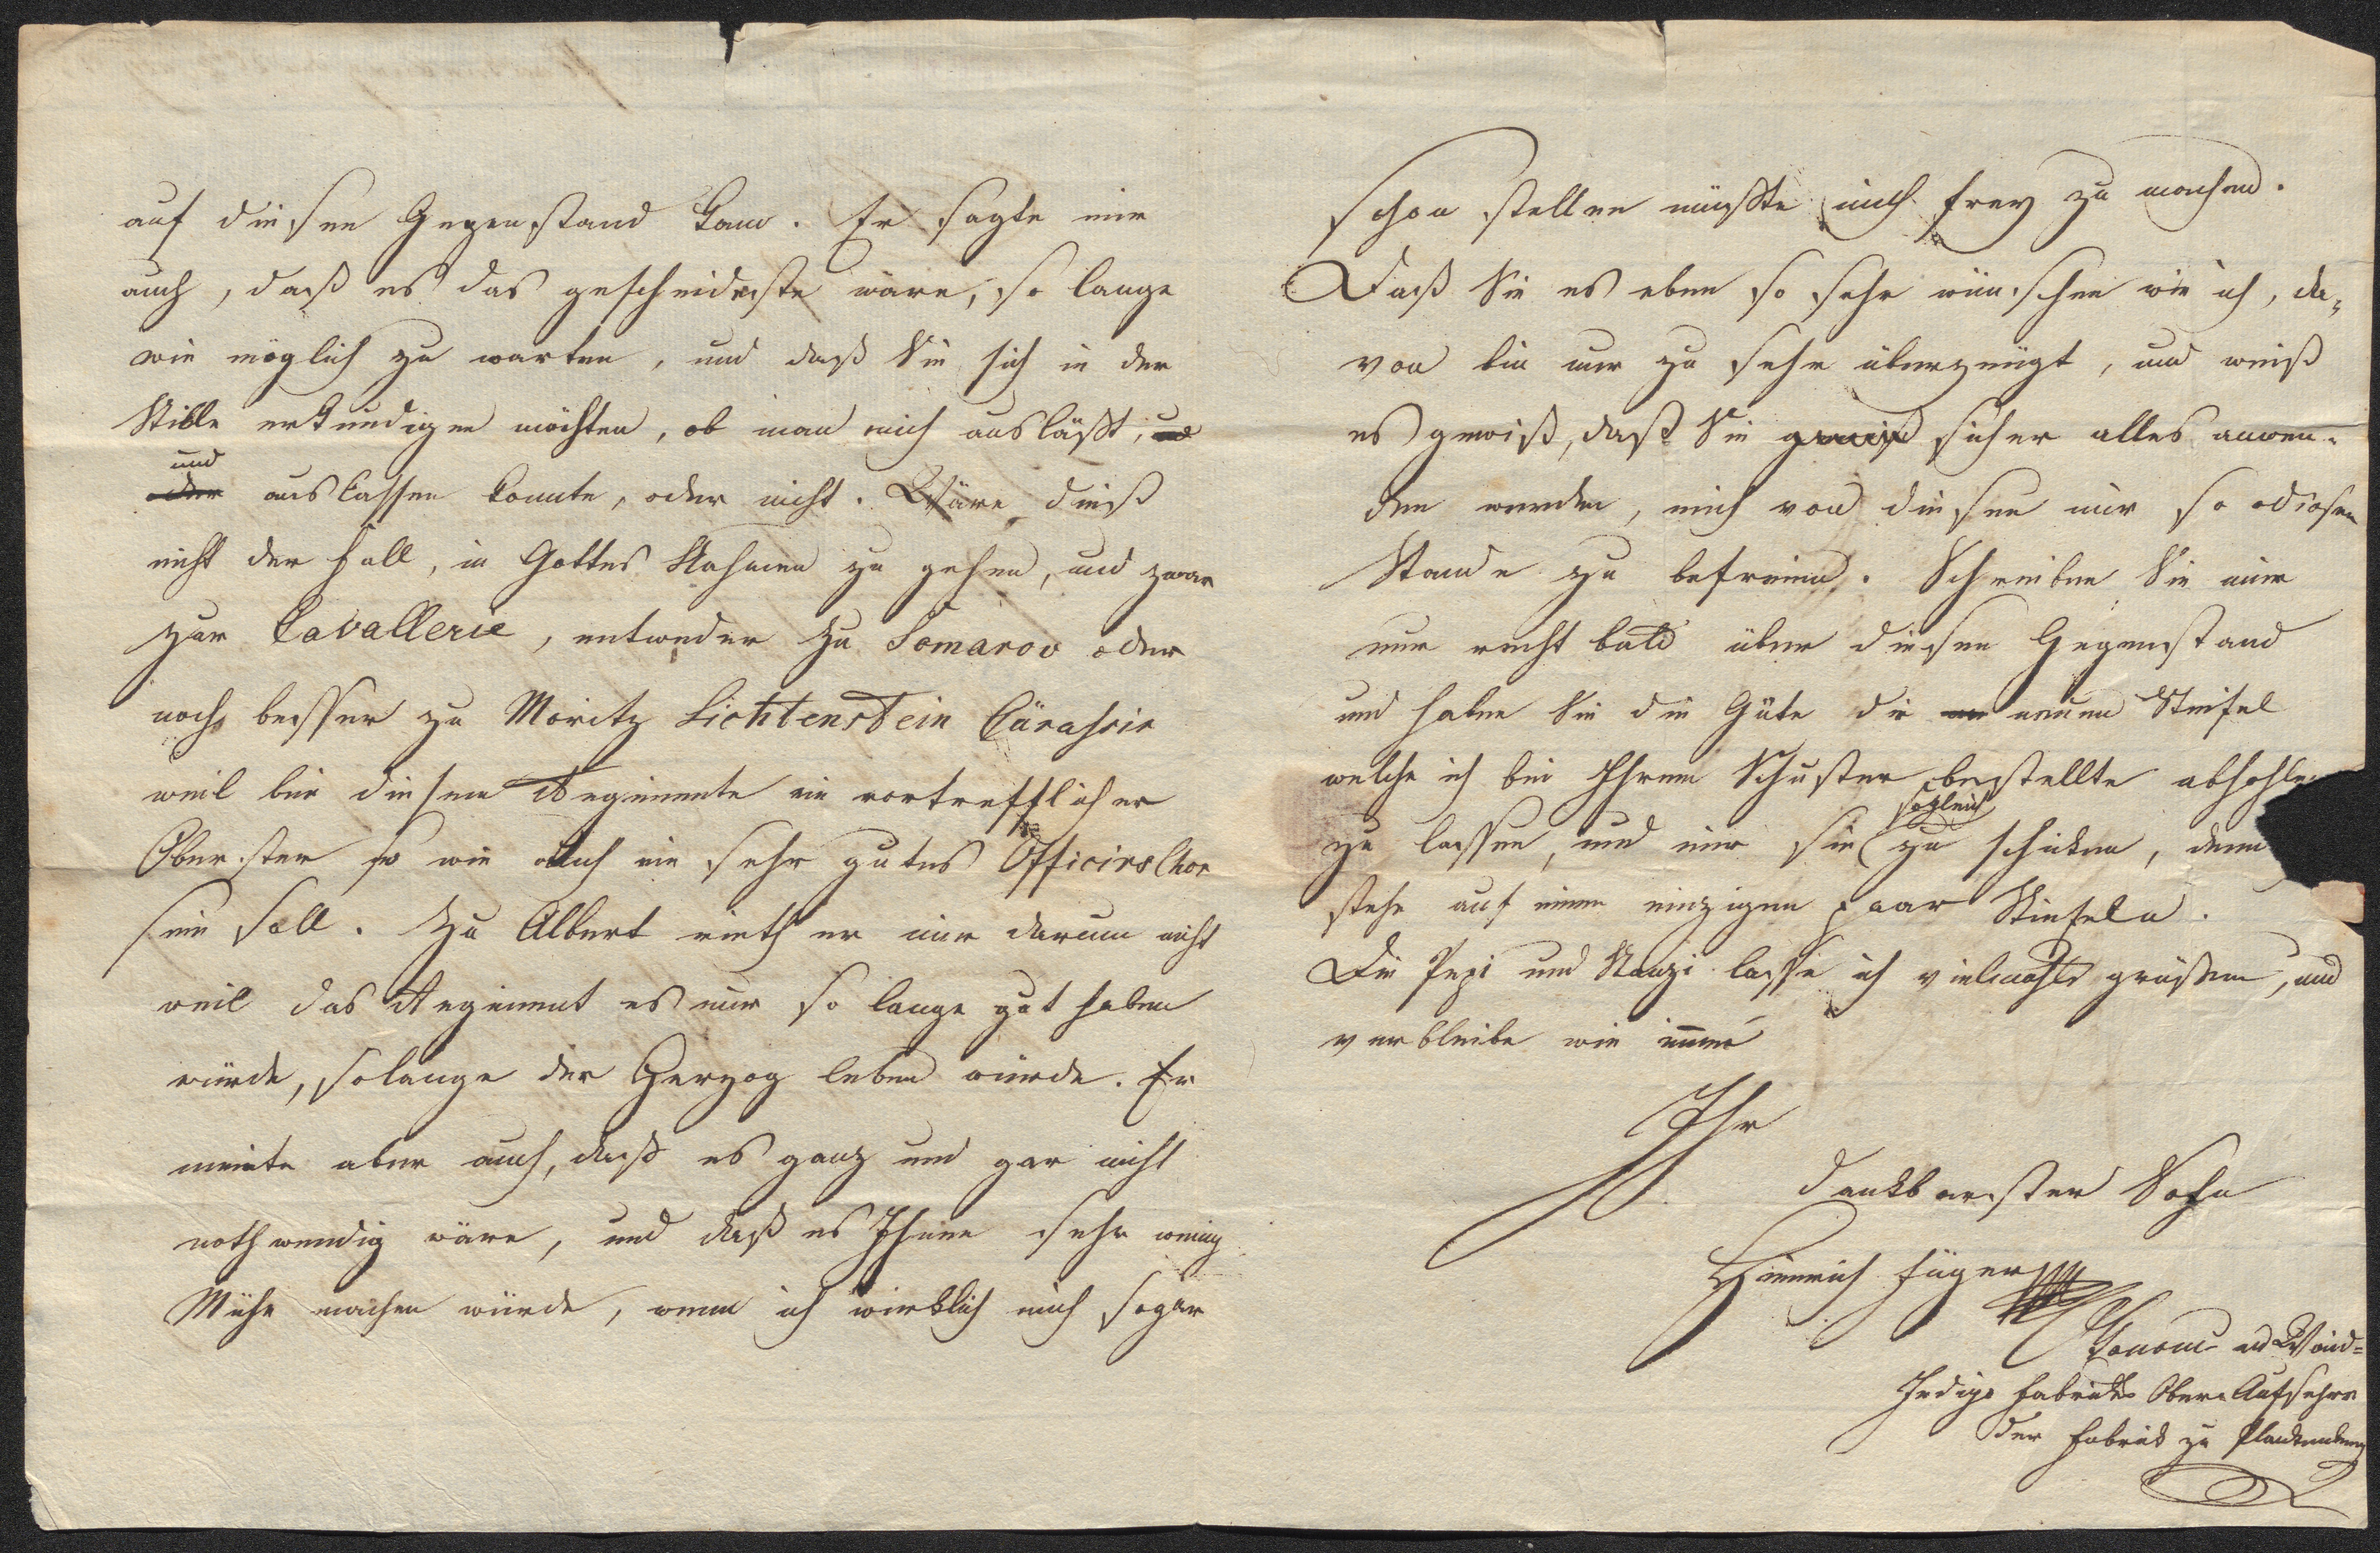 auf diesen Gegenstand kam. Er sagte mir
auch, daß es das gescheideste wäre, so lange
wie möglich zu warten, und daß Sie sich in der
Stille erkundigen möchten, ob man mich ausläßt, und
und
oder auslassen konnte, oder nicht. Wäre dieß
nicht der Fall, in Gottes Nahmen zu gehen, und zwar
zur Cavallerie, entweder zu Somarov oder
noch besser zu Moritz Lichtenstein Cürassir
weil bei diesem Regimente ein vortrefflicher
Oberster so wie auch ein sehr gutes Officirs Chor
sein soll. Zu Albert rieth er mir darum nicht
weil das Regiment es nur so lange gut haben
würde, solange der Herzog leben würde. Er
meinte aber auch, daß es ganz und gar nicht
nothwendig wäre, und daß es Ihnen sehr wenig
Mühe machen würde, wenn ich wirklich mich sogar
schon stellen müßte mich frey zu machen.
Daß Sie es eben so sehr wünschen wie ich, da-
von bin nur zu sehr überzeugt, und weiß
es gewiß, daß Sie gewiß sicher alles anwen-
den werden, mich von diesen mir so odiosen
Stande zu befreien. Schreiben Sie mir
nur recht bald über diesen Gegenstand
und haben Sie die Güte die neuen Stiefel
welche ich bei Ihrem Schuster bestellte abhohlen
sogleich
zu lassen, und mir sie zu schicken, denn
stehe auf einem einzigen paar Stiefeln.
Die Pepi und Nanzi lasse ich vielmahls grüßen, und
verbleibe wie immer
Ihr
dankbarster Sohn
Heinrich Füger
Waid=
Indigo Fabriks Ober-Aufseher
der Fabrik zu